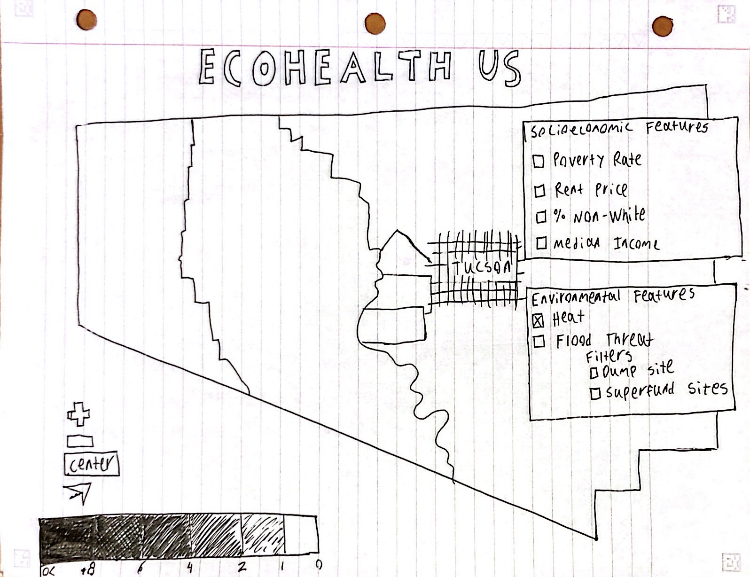 ECOHEALTH US
Socioeconomic Features
Poverty Rate
Rent Price
% Non-White
Median Income
TUCSON
Environmental Features
Heat
Flood Threat
Filters
Dump site
Superfund Sites
center
6 4 2 1 0